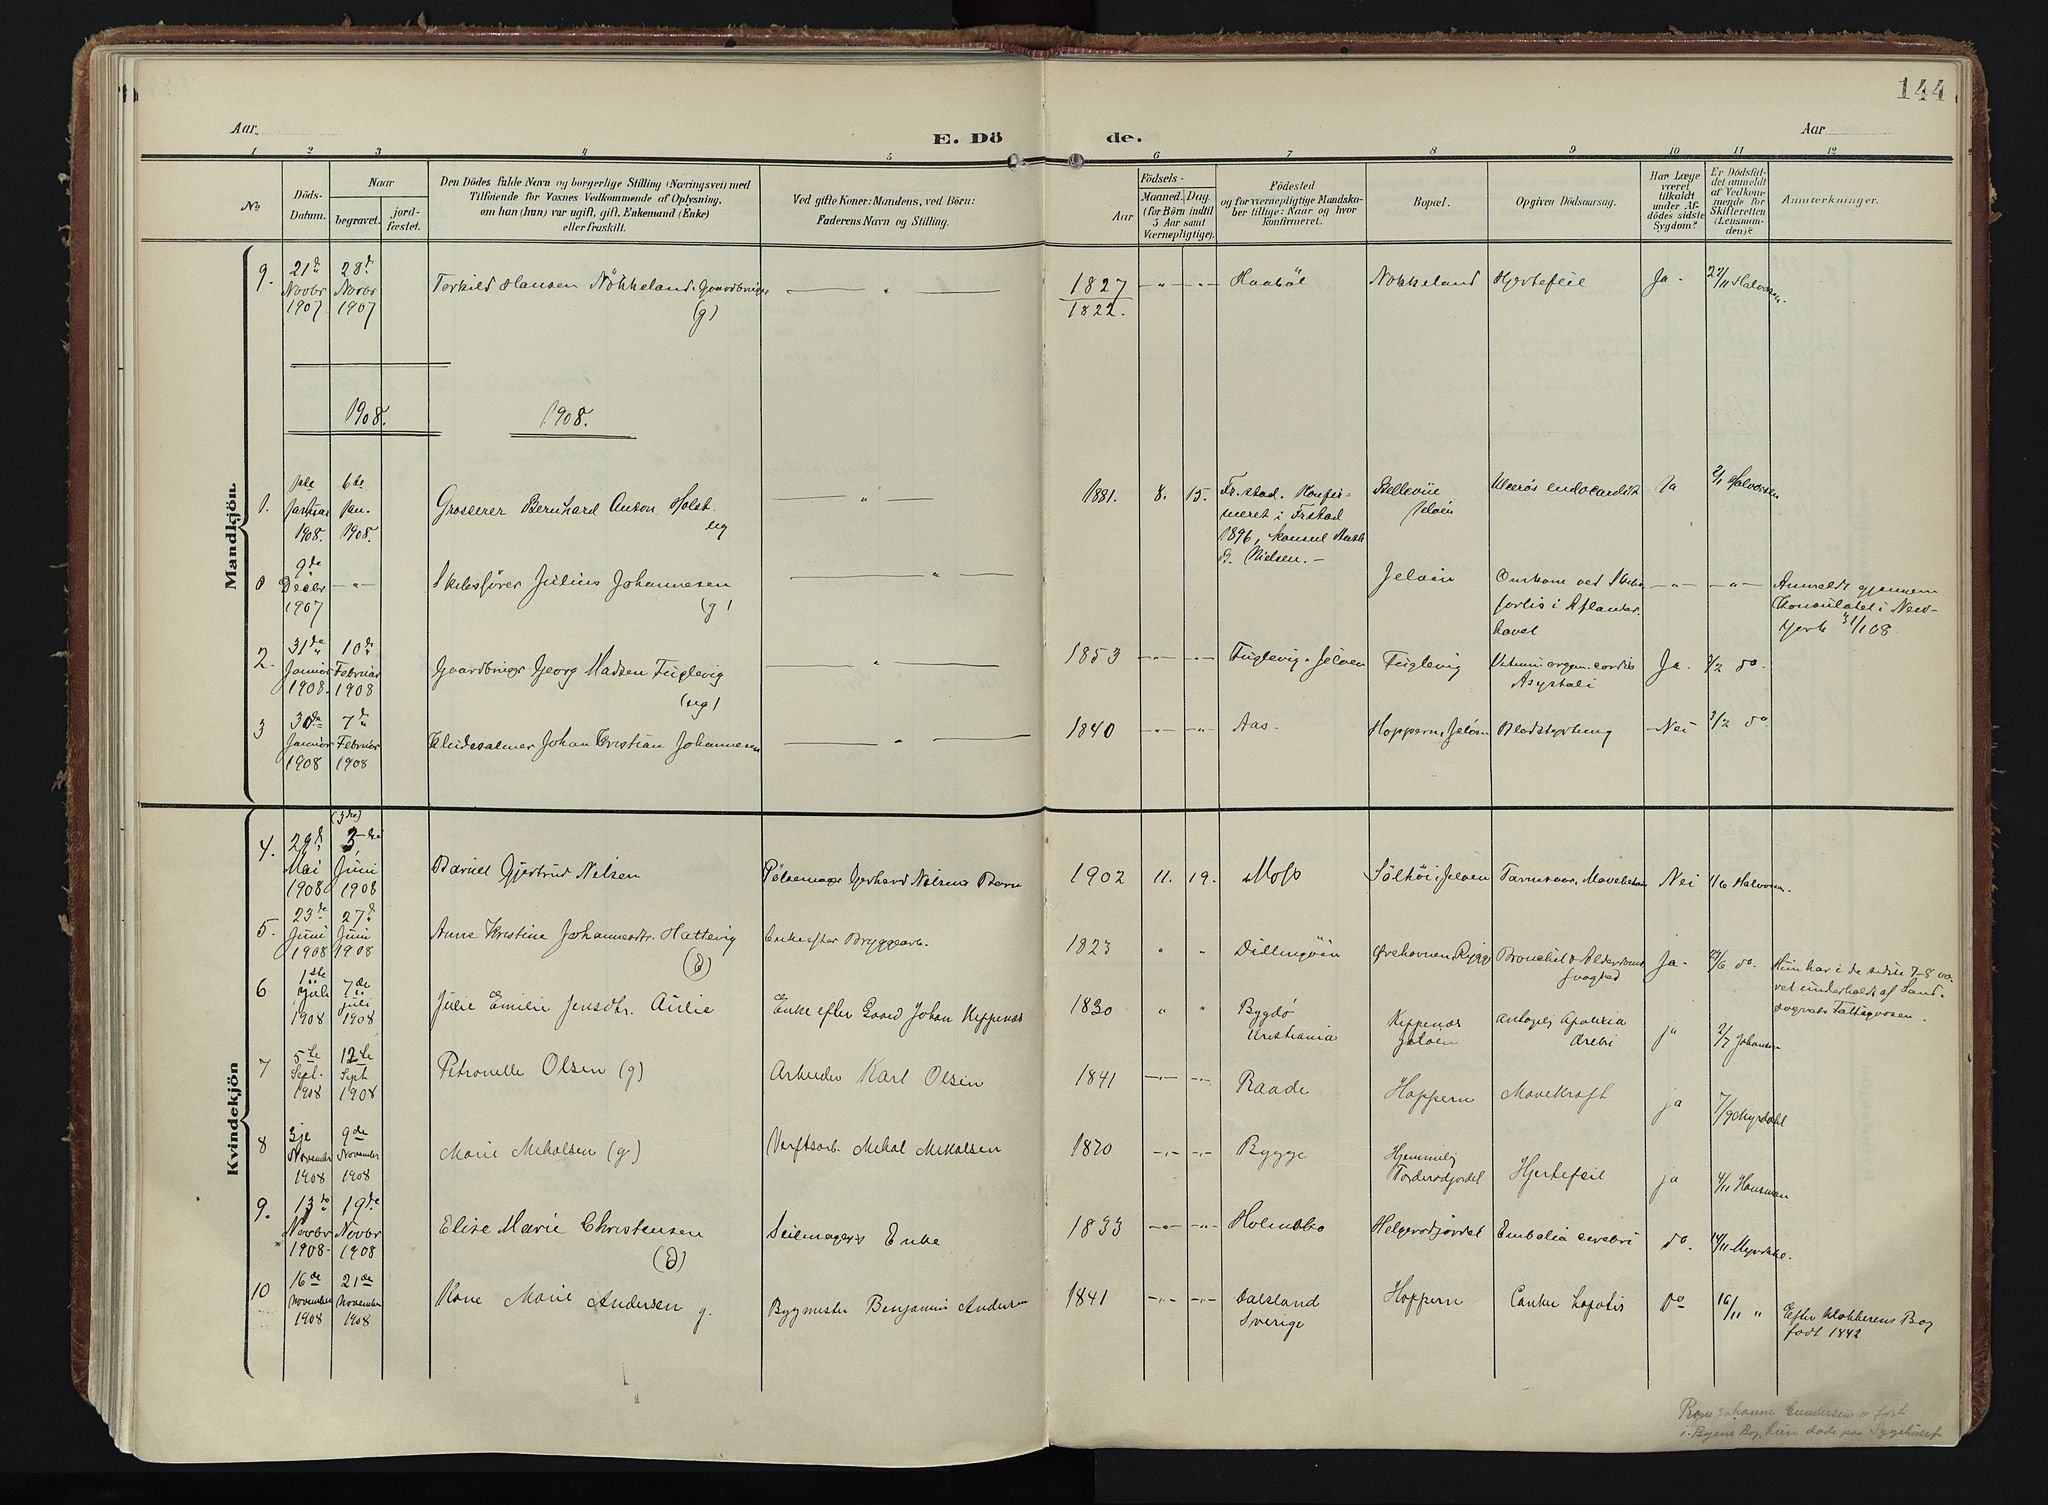 144
Aar
E. Dö de.
Aar
1 2 3 4 5 6 7 8 9 10 11 12
No
Döds-
Datum.
Naar
begravet.
jord-
fæstet.
Den Dödes fulde Navn og borgerlige Stilling (Næringsvei) med
Tilföiende for Voxnes Vedkommende af Oplysning,
om han (hun) var ugift, gift, Enkemand (Enke)
eller fraskilt.
Ved gifte Koner: Mandens, ved Börn:
Faderens Navn og Stilling.
Aar
Födsels-
Maaned. Dag.
(for Börn indtil
5 Aar samt
Værnepligtige).
Födested
og for værnepligtige Mandska-
ber tillige: Naar og hvor
konfirmeret.
Bopæl.
Opgiven Dödsaarsag.
Har Læge
været
tilkaldt
under Af-
dödes sidste
Sygdom?
Er Dödsfal-
det anmeldt
af Vedkom-
mende for
Skifteretten
(Lensman-
den)?
Anmærkninger.
Mandkjön.
9. 21de Novbr 1907 28de Novbr 1907 Terkild Hansen Nökkeland. Gaardbruger (g) 1827 1822. Haaböl Nökkeland Hjertefeil Ja. 22/11 Halvorsen
1908. 1908.
1. 1ste Januar 1908. 6te Jan. 1908. Grosserer Bernhard Anton Holst ug 1881. 8. 15. Fr.stad. Konfir-
meret i Frstad
1896, konsul
Nielsen.
Bellevue Jelöen Ulcerös endocardit Ja 2/1 Halvorsen
0 9de Decbr 1907 Skibsförer Julius Johannesen (g) Jelöen Omkom ved Skibs-
forlis i Atlanter-
havet
Anmeldt gjennem
Konsulatet i New-
York 31/1 08.
2. 31te Januar 1908. 10de Februar 1908 Gaardbruger Georg Madsen Fuglevig (ug) 1853 Fuglevig. Jelöen Fuglevig Vitium organ. cordis
Asystoli Ja. 3/2 do.
3 30de Januar 1908 7de Februar 1908 Kludesamler Johan Kristian Johannesen 1840 Aas. Hoppern, Jelöen Blodstyrtning Nei 3/2 do
Kvindekjön
4. 29de Mai 1908 (3die) 3die Juni 1908 Gjertrud Nilsen Pölsemager Gerhard Nilsens Barn 1902 11. 19. Moss Sölhöi, Jelöen Nei 1/6 Halvorsen.
5. 23de Juni 1908 27de Juni 1908 Anne Kristine Johannesdtr. Hattevig (E) Enke efter Bryggearb. 1823 Dillingöen Ørehavnen, Rygge Bronchit & Alderdoms-
svaghed Ja. 23/6 do. Hun har i de sidste 7-8 væ-
ret underholdt af Land-
sognets Fattigvæsen.
6 1ste Juli 1908 7de juli 1908 Julie Emilie Jensdtr. Aulie Enke efter Gaard Johan Kippenæs 1830 Bygdø
Kristiania Kippenæs
Jeløen Antagelig Apoplexia
cerebri ja 2/7 Johansen
7 5te Sept. 1908 12te Sept 1908 Petronelle Olsen (g) Arbeider Karl Olsen 1841 Raade Hoppern Mavekræft ja 7/9 Myrdahl
8 3je November 1908 9de November 1908 Marie Mikalsen (g) Verftsarb. Mikal Mikalsen 1870 Rygge Hjemmilej
Torderödjordet Hjertefeil ja 4/11 Hansman
9. 13de Novbr 1908 19de Novbr 1908 Elise Marie Christensen (E) Seilmagers Enke 1833 Holmsbo Helgerödjordet Embolia cerebri do. 14/11 Myrdahl.
10 16de November 1908 21de November 1908 Kone Marie Andersen g. Bygmester Benjamin Andersen 1841 Dalsland
Sverige Hoppern Do 16/11 " Efter Klokkerens Bog
född 1842
Johanne Gundersen er fört
i Byens Bog, hun döde paa Sygehuset